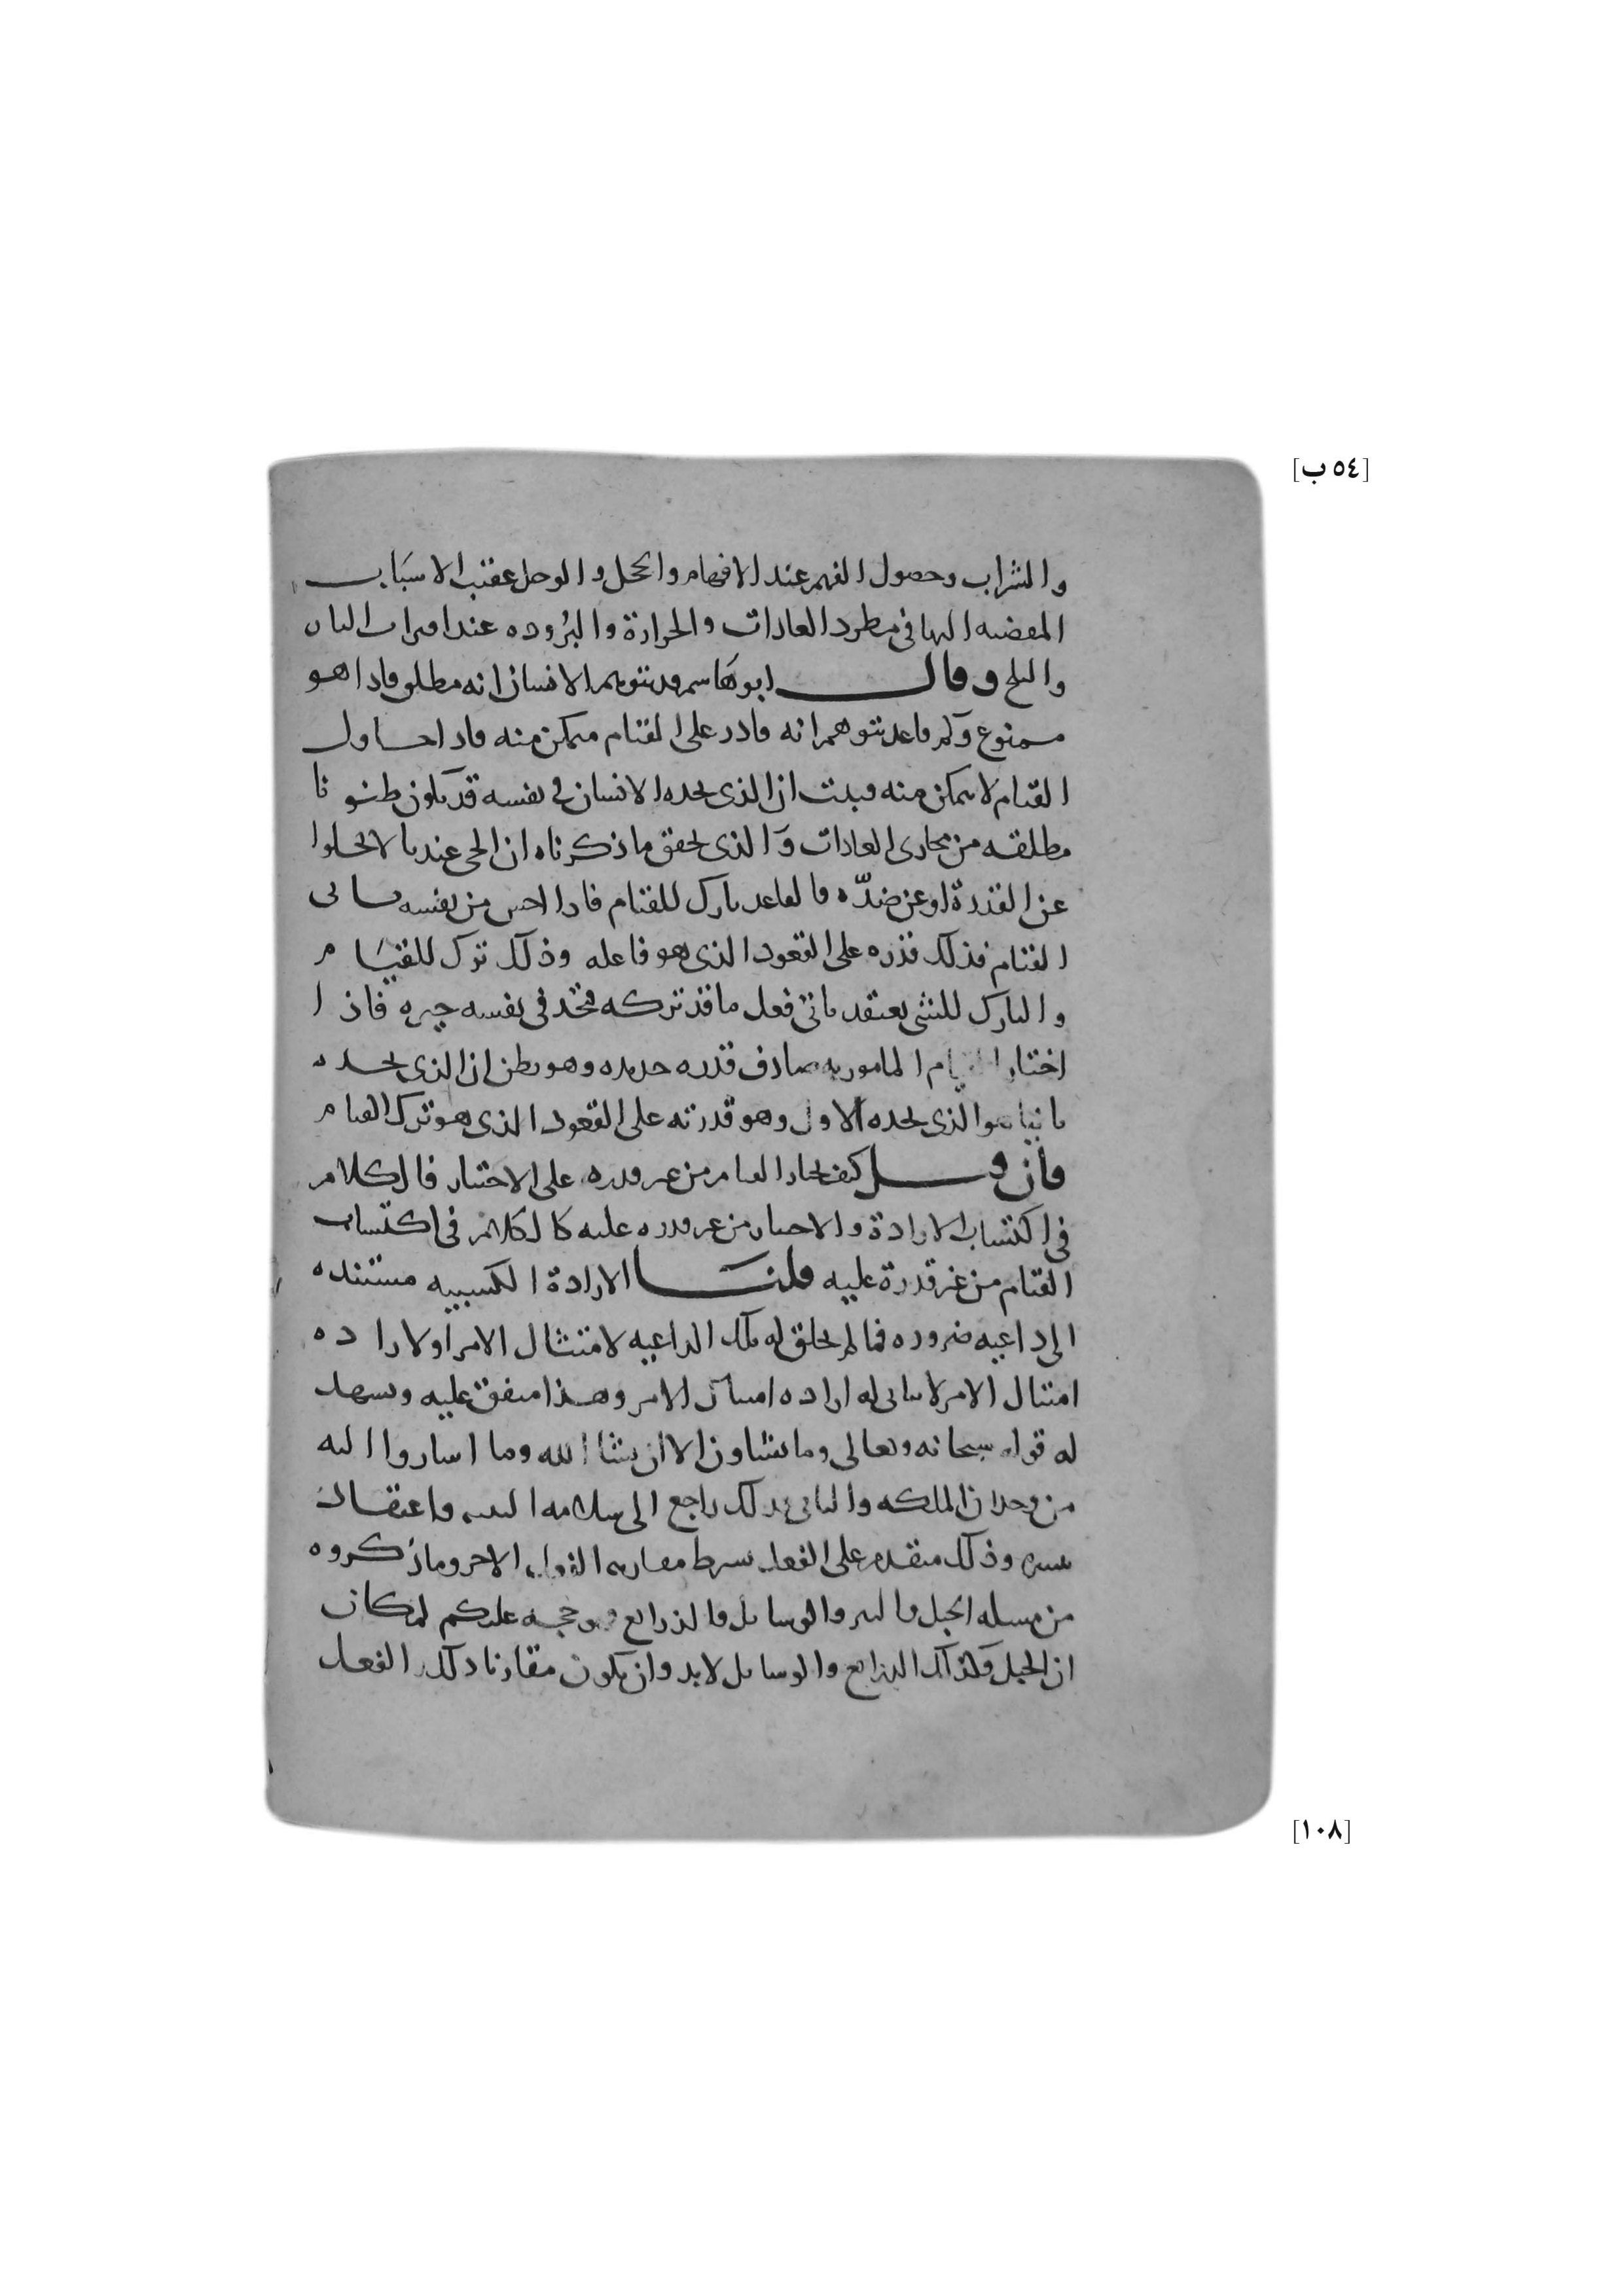 [٥٤ ب]
والشراب وحصول الفهم عند الافهام والخجل والوجل عقيب الاسباب
المفضيه اليها في مطرد العادات والحرارة والبرُوده عند اقتراب النار
والثلج وقال ابو هَاشم قد يتوهم الانسان انه مطلق فاذا هو
ممنوع وكم قاعد يتوهم انه قادر على القيام متمكن منه فاذا حاول
القيام لا يتمكن منه فبينت ان الذي يجده الانسان في نفسه قد يكون ظنونا
مطلقه من مجاري العادات وَالذي يحقق ما ذكرناه ان الحي عندنا لا يخلوا
عن القدرة او عن ضدّه فالقاعد تارك للقيام فاذا احس من نفسه تاتي
القيام فذلك قدره على القعود الذي هو فاعله وذلك ترك للقيَام
والتارك للشي يعتقد تاتي فعل ما قد تركه فيجد في نفسه خيره فاذا
اختار القيام المامور به صادف قدره جديده وهو يظن ان الذي يجده
ثانيا هو الذي يجده الاول وهو قدرته على القعود الذي هو ترك القيام
فان قيل كيف يختار القيام من غير قدره على الاختيار فالكلام
في اكتساب الارادة والاختيار من غير قدره عليه كالكلام في اكتساب
القيام من غير قدرة عليه قلنَا الارادة الكسبيه مستنده
الى داعيه ضروره فما لم يخلق له تلك الداعيه لامتثال الامر او لاراده
امتثال الامر لا يتاتى له اراده امتثال الامر وهذا متفق عليه ويشهد
له قوله سبحانه وتعالى وما تشاون الا ان يشا الله وما اشاروا اليه
من وجدان الملكه والتاتي فذلك راجع الى سلامه البنيه واعتقاد
تيسره وذلك متقدم على الفعل بشرط مقارنه الاخر وما ذكروه
من مسله الحبل والوسائل والذرائع فهو حجه عليكم لمكان
ان الحبل وكذلك الذرائع والوسائل لا بد وان يكون مقارنا ذلك الفعل
[١٠٨]